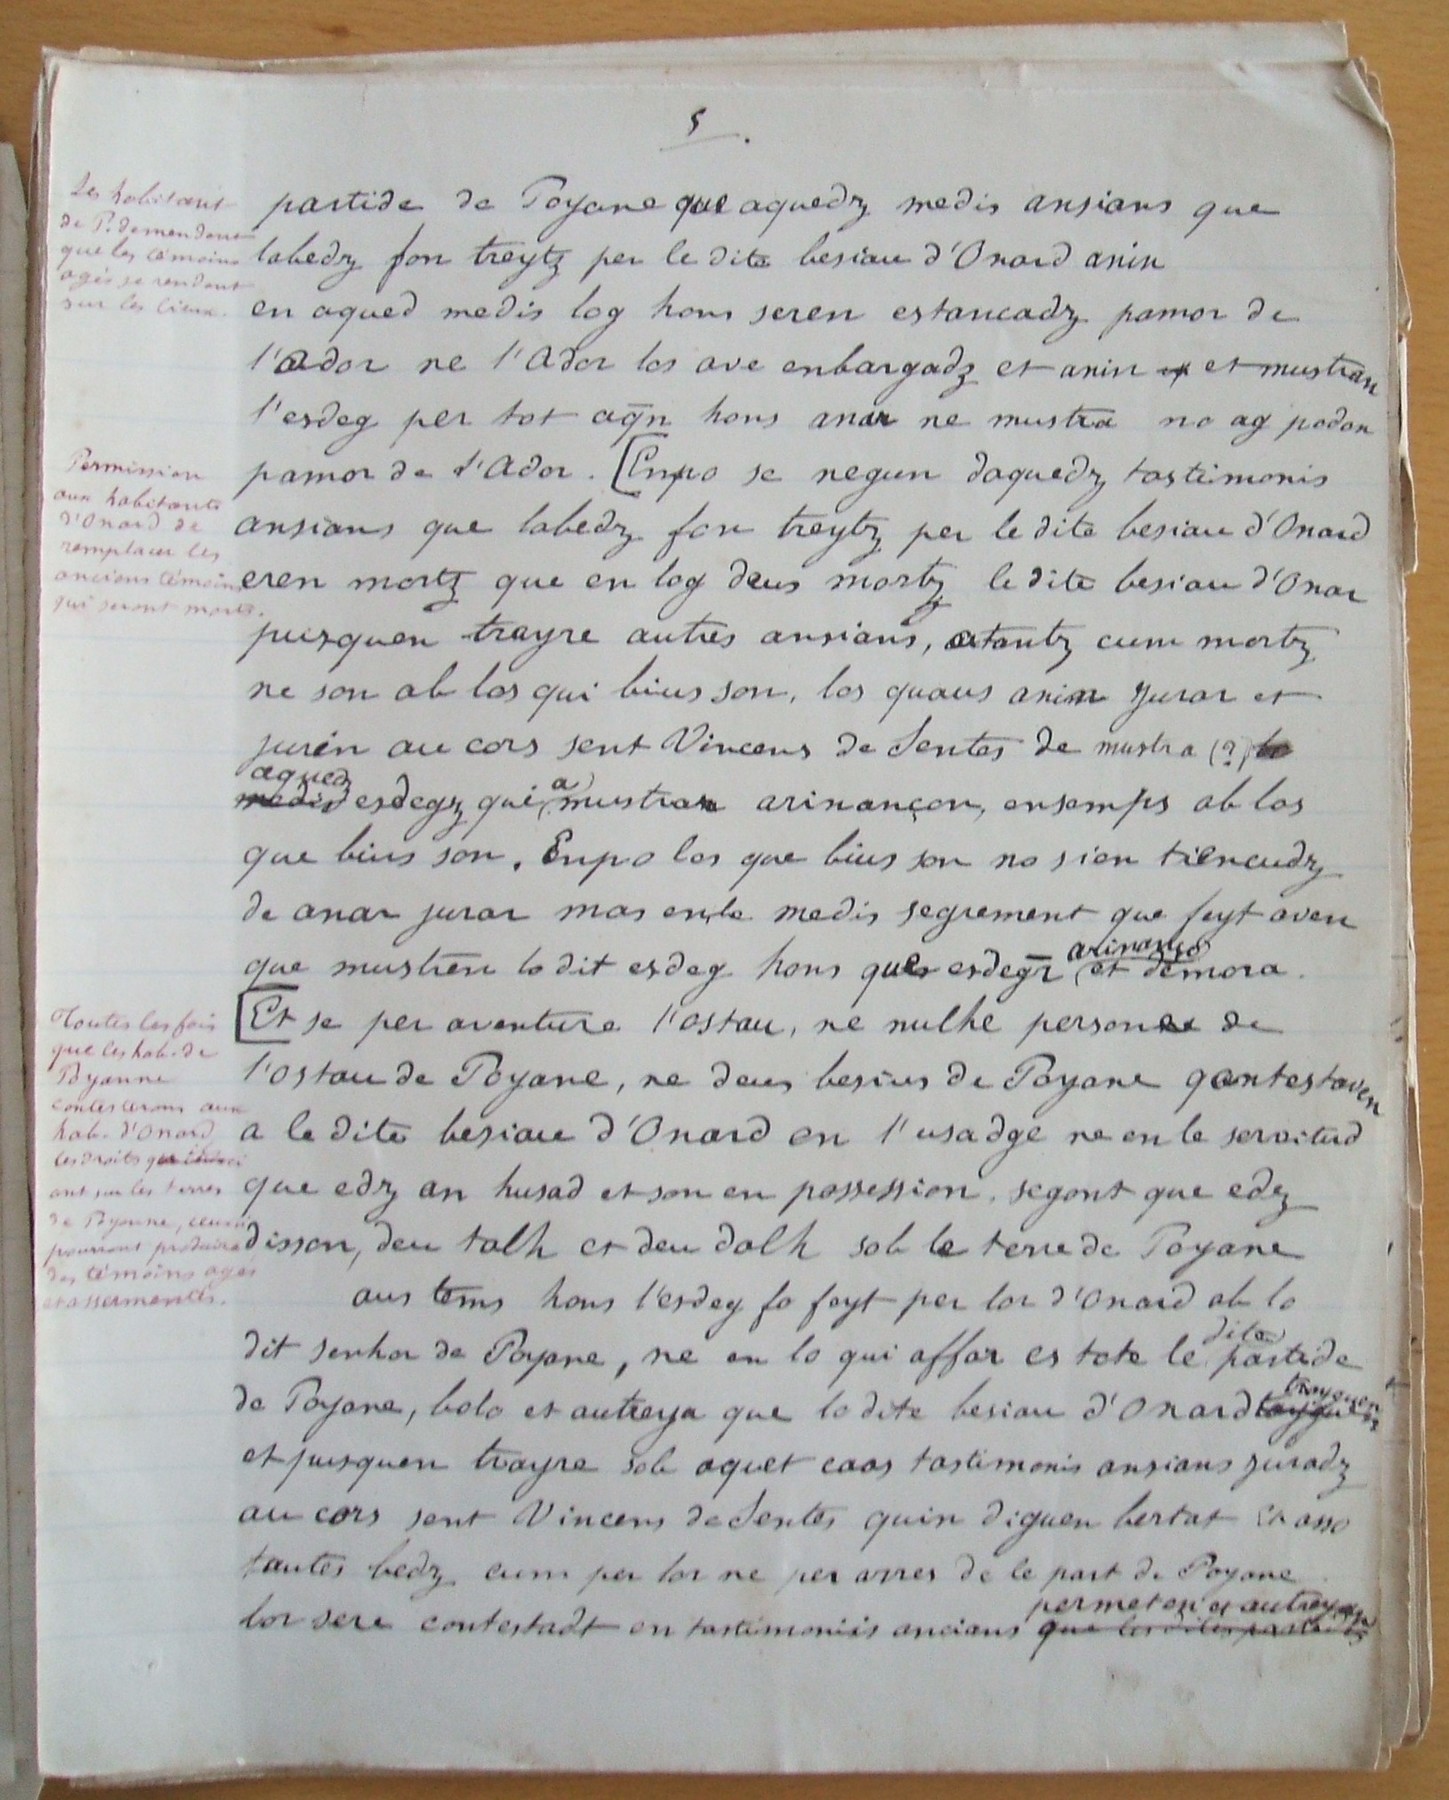 5.
Les habitant
de P. demendent
que les témoins
agés se rendent
sur les lieux.
partide de Poyane que aquedz medis ansians que
labedz fon treytz per le dite besiau d'Onard anin
en aqued medis log hons seren estancadz pamor de
l'Ador ne l'Ador los ave enbargadz et anin et mustran
l'esdeg per tot aqn hons anar ne mustra no ag podon
Permission
aux habitants
d'Onard de
remplacer les
anciens témoins
qui seront morts.
pamor de l'Ador. [Enpo se negun daquedz tastimonis
ansians que labedz fon treytz per le dite besiau d'Onard
eren mortz que en log deus mortz le dite besiau d'Onar
pusquen trayre autres ansians, atantz cum mortz
ne son ab los qui bius son, los quaus anin jurar et
jurin au cors sent Vincens de Sentes de mustra (?)
aquedz
medis esdegz qui a mustran arinançon, ensemps ab los
que bius son. Enpo los que bius son no sien tiencudz
de anar jurar mas en le medis segrement que feyt aven
que mustren lo dit esdeg hons ques esdegz arinanço et demora.
Toutes les fois
que les hab. de
Poyanne
contesterons aux
hab. d'Onard
les droits
ont sur les terres
de Poyanne, ceux ci
pourront produire
des témoins agés
et assermentés.
[Et se per aventure l'ostau, ne nulhe persone de
l'ostau de Poyane, ne deus besius de Poyane contestaven
a le dite besiau d'Onard en l'usadge ne en le servitud
que edz an husad et son en possession, segont que edz
disson, deu talh et deu dalh sob le terre de Poyane
aus tems hons l'esdeg fo feyt per lor d'Onard ab lo
dit senhor de Poyane, ne en lo qui affar es tote le dite partide
de Poyane, bolo et autreya que lo dite besiau d'Onard
et pusquen trayre sob aquet caas tastimonis ansians juradz
au cors sent Vincens de Sentes quin diguen bertat Et asso
tantes bedz cum per lor ne per arres de le part de Poyane
lor sere contestadt en tastimoniis ancians permeton et autreyan
que les dites partides